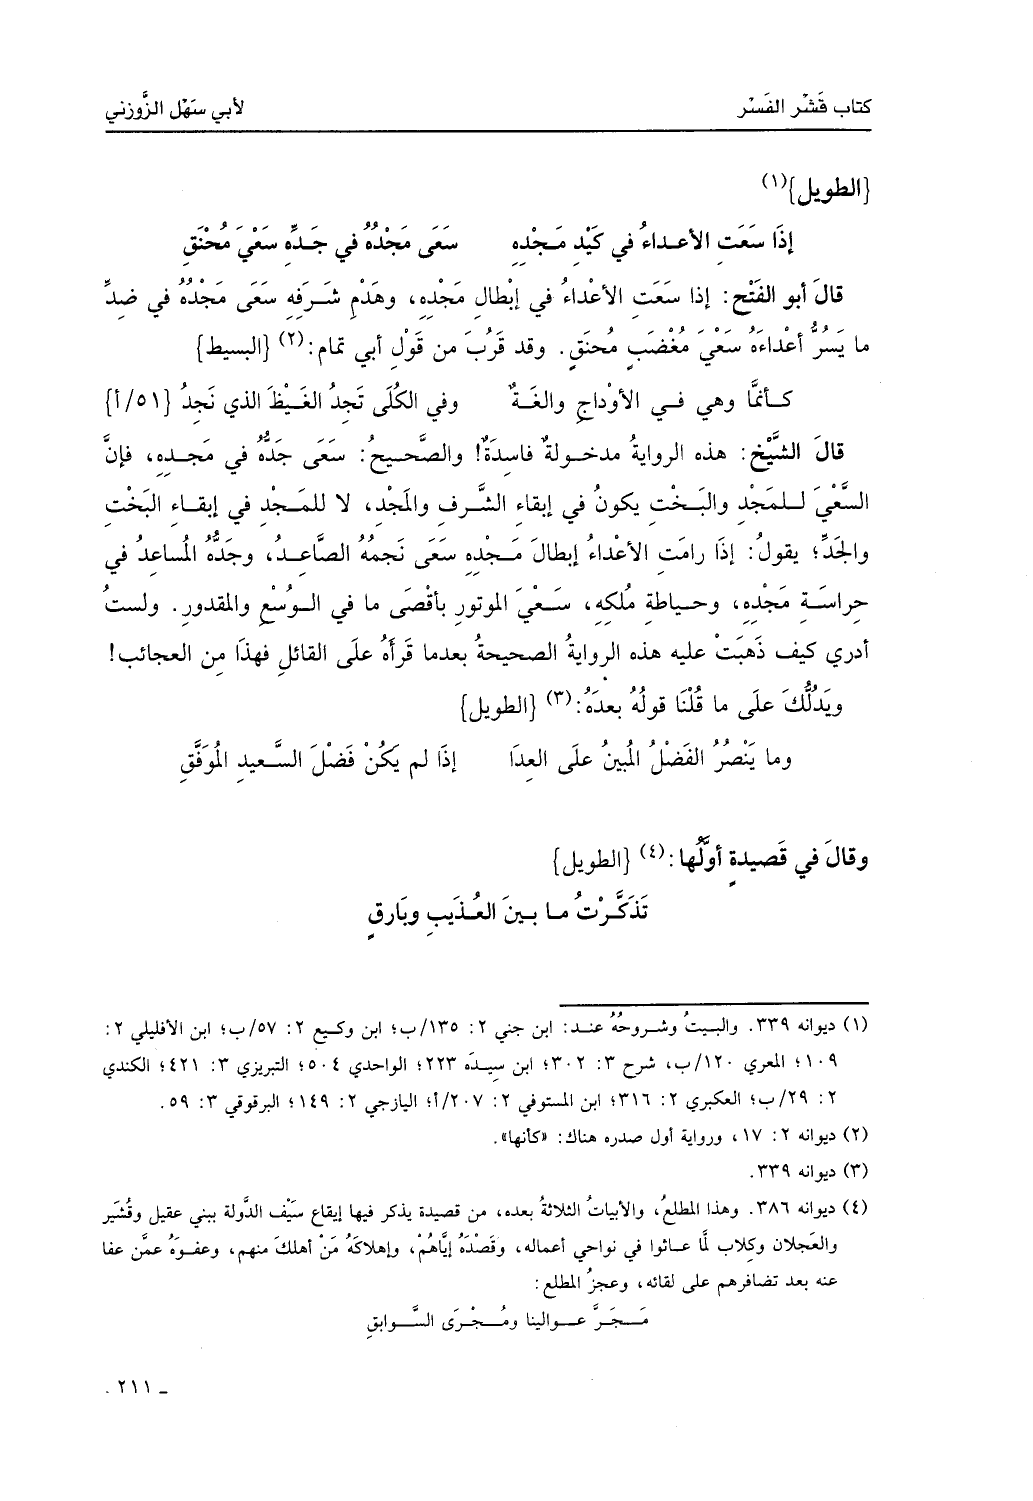 كتاب قَشْر الفَسْر
لأبي سَهْل الزَّوزني
{الطويل}(١)
إذَا سَعَتِ الأعداءُ في كَيْدِ مَجْدِه سَعَى مَجْدُهُ في جَدِّه سَعْيَ مُحْنَقِ
قالَ أبو الفَتْح: إذا سَعَتِ الأعْداءُ في إبْطالِ مَجْدِهِ، وهَدْمِ شَرَفِهِ سَعَى مَجْدُهُ في ضدِّ
ما يَسُرُّ أعْداءَهُ سَعْيَ مُغْضَبٍ مُحنَقٍ. وقد قَرُبَ من قَوْلِ أبي تمام:(٢) {البسيط}
كأنمَّا وهي في الأوْداجِ والغَةٌ وفي الكُلَى تَجدُ الغَيْظَ الذي نَجدُ {٥١/أ}
قالَ الشَّيْخ: هذه الروايةُ مدخولةٌ فاسدَةٌ! والصَّحيحُ: سَعَى جَدُّهُ في مَجدِهِ، فإنَّ
السَّعْيَ للمَجْدِ والبَختِ يكونُ في إبقاءِ الشَّرفِ والمَجْدِ، لا للمَجْدِ في إبقاءِ البَخْتِ
والجَدِّ؛ يقولُ: إذَا رامَتِ الأعْداءُ إبطالَ مَجْدِهِ سَعَى نَجمُهُ الصَّاعدُ، وجَدُّهُ المُساعدُ في
حِراسَةِ مَجْدِهِ، وحياطةِ مُلكِهِ، سَعْيَ الموتورِ بأقْصَى ما في الوُسْعِ والمَقدورِ. ولستُ
أدري كيف ذَهَبَتْ عليه هذه الروايةُ الصحيحةُ بعدما قَرأَهُ علَى القائلِ فهذَا من العجائب!
ويَدُلُّكَ علَى ما قُلْنَا قولُهُ بعدَهُ:(٣) {الطويل}
وما يَنْصُرُ الفَضْلُ المُبينُ علَى العِدَا إذَا لم يَكُنْ فَضْلَ السَّعيدِ المُوَفَّقِ
وقالَ في قَصيدةٍ أوَّلُها:(٤) {الطويل}
تَذَكَّرْتُ ما بينَ العُذَيبِ وبَارقٍ
(١) ديوانه ٣٣٩. والبيتُ وشروحُهُ عند: ابن جني ٢: ١٣٥/ب؛ ابن وكيع ٢: ٥٧/ب؛ ابن الأفليلي ٢:
١٠٩؛ المعري ١٢٠/ب، شرح ٣: ٣٠٢؛ ابن سيدَه ٢٢٣؛ الواحدي ٥٠٤؛ التبريزي ٣: ٤٢١؛ الكندي
٢: ٢٩/ب؛ العكبري ٢: ٣١٦؛ ابن المستوفي ٢: ٢٠٧/أ؛ اليازجي ٢: ١٤٩؛ البرقوقي ٣: ٥٩.
(٢) ديوانه ٢: ١٧، ورواية أول صدره هناك: «كأنها».
(٣) ديوانه ٣٣٩.
(٤) ديوانه ٣٨٦. وهذا المطلعُ، والأبياتُ الثلاثةُ بعده، من قصيدة يذكر فيها إيقاع سَيْف الدَّولة ببني عقيل وقُشَير
والعَجلان وكِلاب لمَّا عاثوا في نواحي أعماله، وقَصْدَهُ إيَّاهُمْ، وإهلاكَهُ مَنْ أهلكَ منهم، وعفوَهُ عمَّن عفا
عنه بعد تضافرهم على لقائه، وعجزُ المطلع:
مَجَرَّ عوالينا ومُجْرَى السَّوابقِ
ـ ٢١١ .